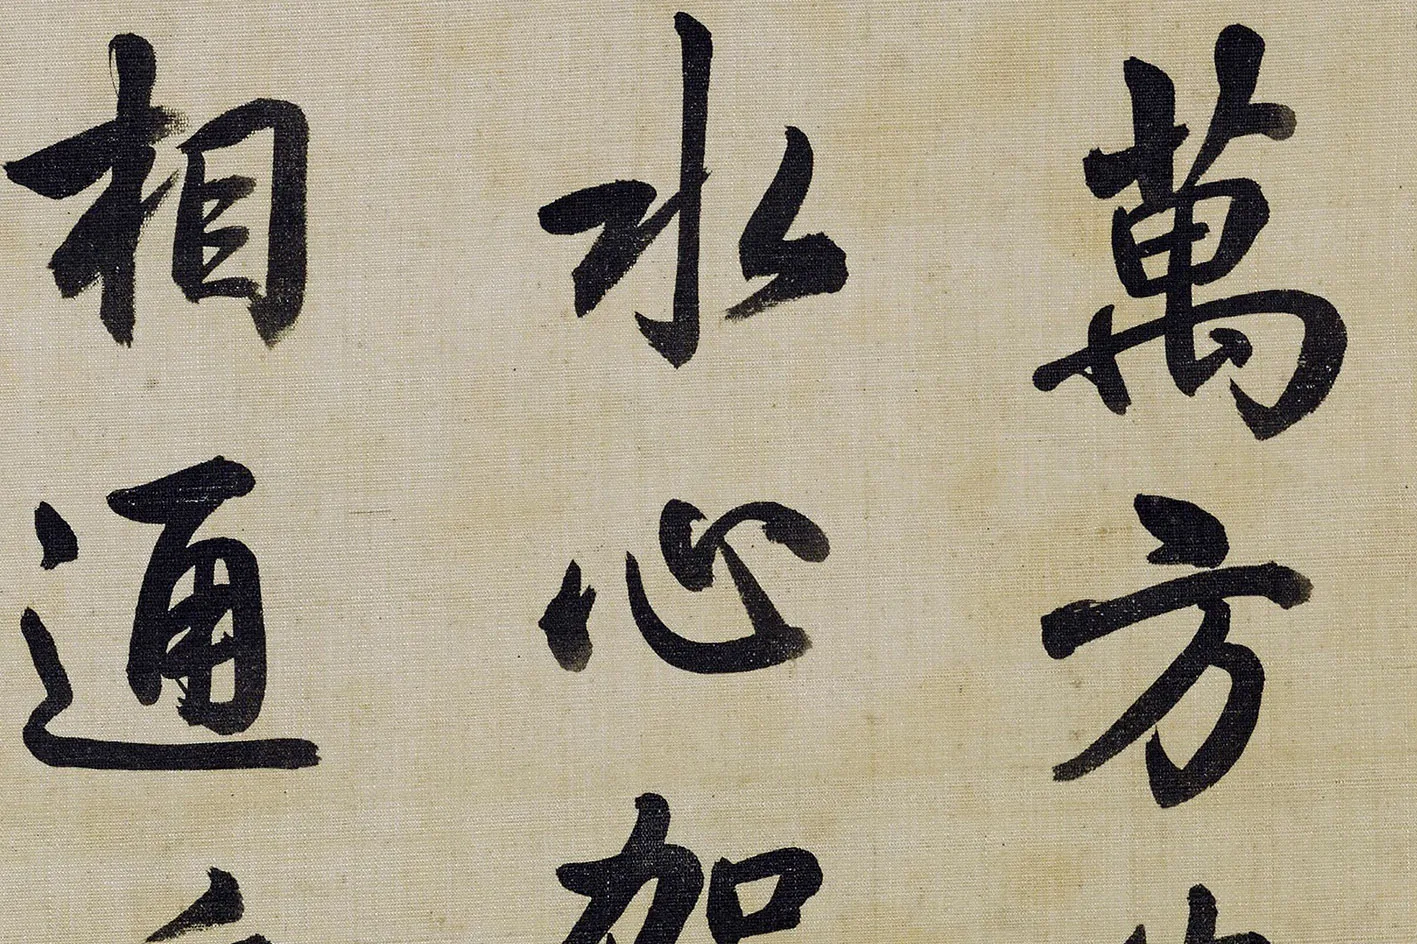 萬方
水心
相通